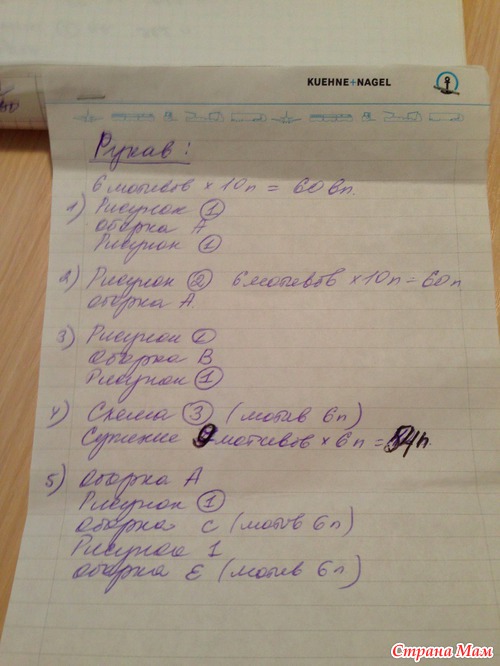 KUEHNE+NAGEL
Рукав:
6 мотивов × 10п = 60 вп.
1) Рисунок 1
оборка А
Рисунок 1
2) Рисунок 2 6 мотивов × 10п = 60п
оборка А
3) Рисунок 1
оборка В
Рисунок 1
4) Схема 3 (мотив 6п)
Сужение 9 мотивов × 6п = 54п.
5) оборка А
Рисунок 1
оборка С (мотив 6п)
Рисунок 1
оборка Е (мотив 6п)
Страна Мам